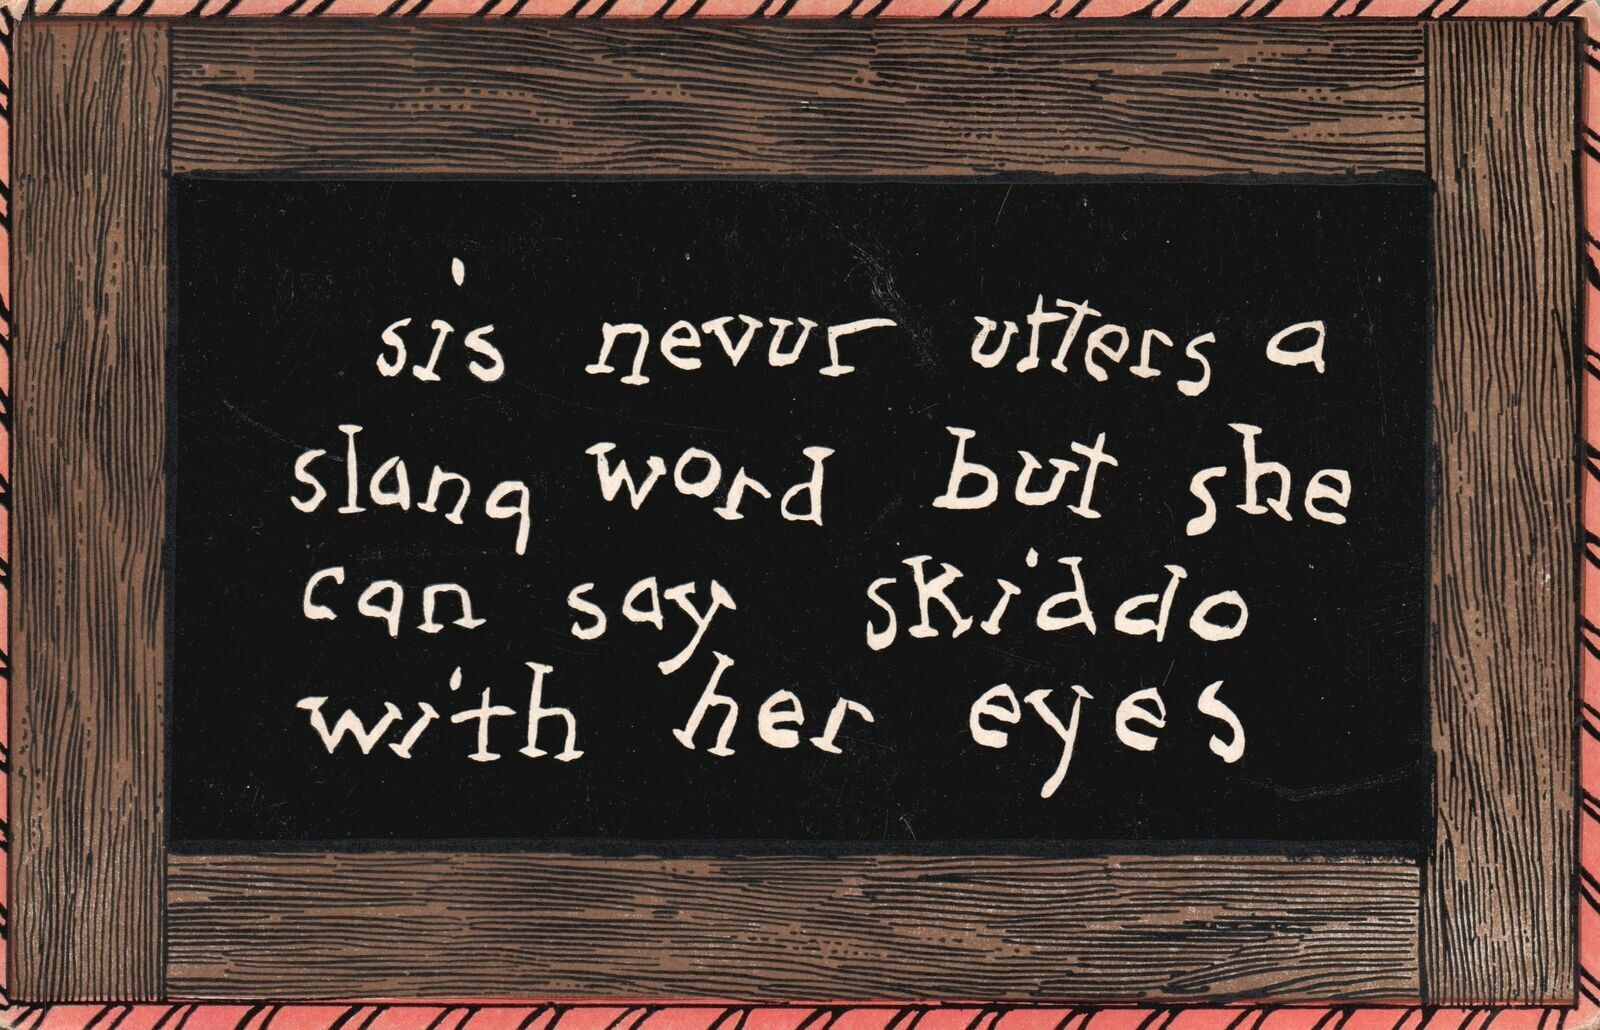 sis nevur utters a
slang word but she
can say skiddo
with her eyes